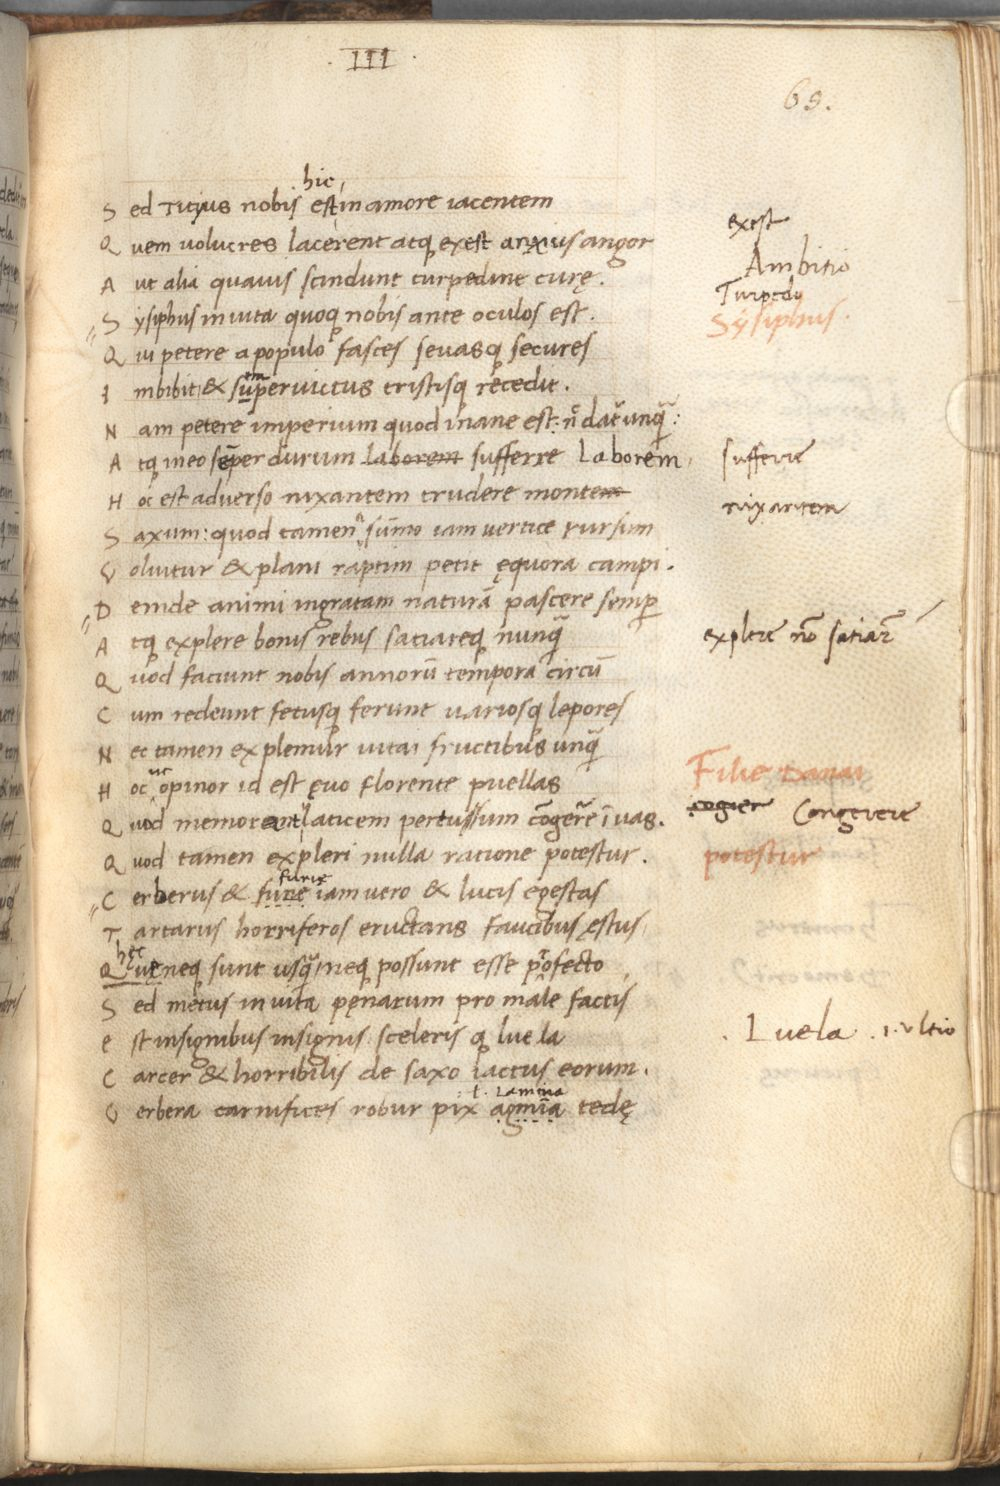 . III .
69.
hic,
Sed Tityus nobis est in amore iacentem
Quem uolucres lacerent atq exest anxius angor
exest
Ambitio
Aut alia quauis scindunt turpedine curę .
Turpedo
Sysiphus in uita quoq nobis ante oculos est .
Sysiphus .
Qui petere a populo fasces seuasq secures
Imbibit & sup̄eruictus tristisq recedit .
Nam petere imperium quod inane est : n̄ datūnquā :
Atq in eo sēper durum laborem sufferre Laborem
sufferre
Hoc est aduerso nixantem trudere montem
nixantem
Saxum : quod tamen sūmo iam uertice rursum
Voluitur & plani raptim petit ęquora campi .
Deinde animi ingratam naturā pascere semp
Atq explere bonis rebus satiareq nunquā
explere nō satiare
Quod faciunt nobis annorū tempora circū
Cum redeunt fetusq ferunt uariosq lepores
Nec tamen explemur uitai fructibus unquā
ut
Hoc opinor id est ęuo florente puellas
Filie Danai
Quod memorant laticem pertussum cōgerēr ī uas .
cogier Congerere
Quod tamen expleri nulla ratione potestur .
potestur
furię
Cerberus & furie iam uero & lucis egestas
Tartarus horriferos eructans faucibus ęstus
hęc
Quę neq sunt usquā neq possunt esse profecto
Sed metus in uita pęnarum pro male factis
est insignibus insignis sceleris q luela
. Luela . i . ultio
Carcer & horribilis de saxo iactus eorum .
: l . Lamina
Verbera carnifices robur pix agmīa tedę